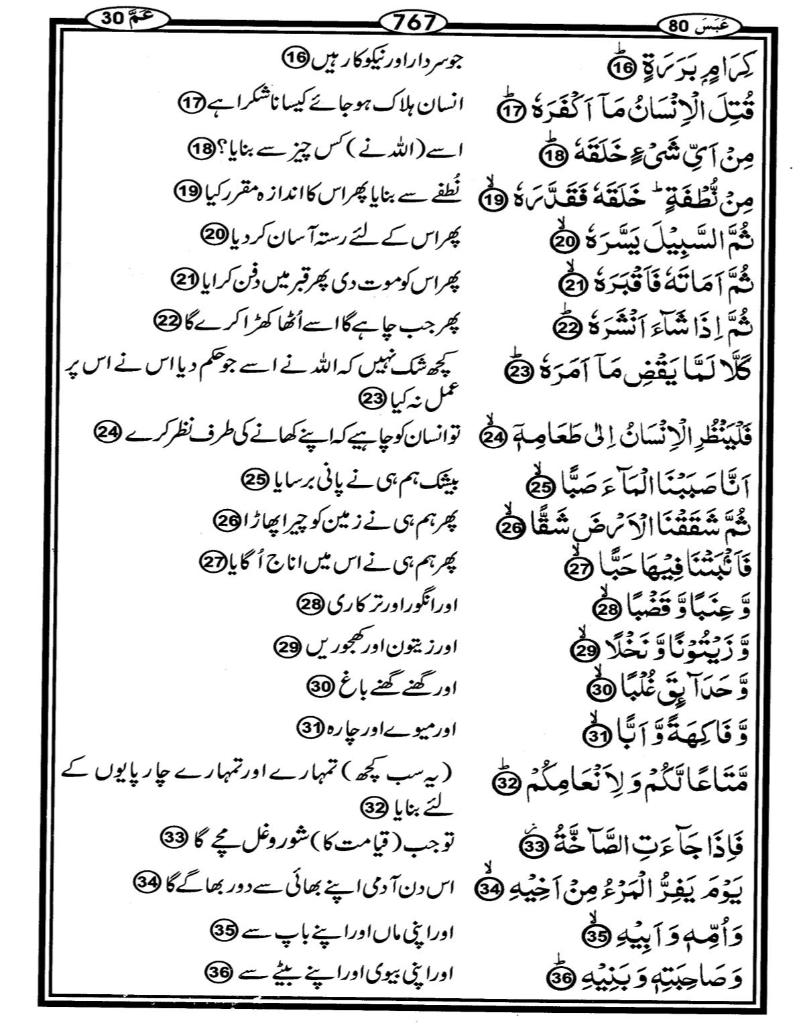 عَمَّ 30
767
عَبَسَ 80
كِرَامٍۭ بَرَرَةٍ ؕ 16
جو سردار اور نیکوکار ہیں 16
قُتِلَ الْاِنْسَانُ مَاۤ اَكْفَرَهٗ ؕ 17
انسان ہلاک ہو جائے کیسا ناشکرا ہے 17
مِنْ اَيِّ شَيْءٍ خَلَقَهٗ ؕ 18
اسے (اللہ نے) کس چیز سے بنایا؟ 18
مِنْ نُّطْفَةٍ ؕ خَلَقَهٗ فَقَدَّرَهٗ ۙ 19
نُطفے سے بنایا پھر اس کا اندازہ مقرر کیا 19
ثُمَّ السَّبِيْلَ يَسَّرَهٗ ۙ 20
پھر اس کے لئے رستہ آسان کر دیا 20
ثُمَّ اَمَاتَهٗ فَاَقْبَرَهٗ ۙ 21
پھر اس کو موت دی پھر قبر میں دفن کرایا 21
ثُمَّ اِذَا شَآءَ اَنْشَرَهٗ ؕ 22
پھر جب چاہے گا اسے اُٹھا کھڑا کرے گا 22
كَلَّا لَمَّا يَقْضِ مَاۤ اَمَرَهٗ ؕ 23
کچھ شک نہیں کہ اللہ نے اسے جو حکم دیا اس نے اس پر
عمل نہ کیا 23
فَلْيَنْظُرِ الْاِنْسَانُ اِلٰى طَعَامِهٖۤ ۙ 24
تو انسان کو چاہیے کہ اپنے کھانے کی طرف نظر کرے 24
اَنَّا صَبَبْنَا الْمَآءَ صَبًّا ۙ 25
بیشک ہم ہی نے پانی برسایا 25
ثُمَّ شَقَقْنَا الْاَرْضَ شَقًّا ۙ 26
پھر ہم ہی نے زمین کو چیرا پھاڑا 26
فَاَنْۢبَتْنَا فِيْهَا حَبًّا ۙ 27
پھر ہم ہی نے اس میں اناج اُگایا 27
وَّ عِنَبًا وَّ قَضْبًا ۙ 28
اور انگور اور ترکاری 28
وَّ زَيْتُوْنًا وَّ نَخْلًا ۙ 29
اور زیتون اور کھجوریں 29
وَّ حَدَآىِٕقَ غُلْبًا ۙ 30
اور گھنے گھنے باغ 30
وَّ فَاكِهَةً وَّ اَبًّا ۙ 31
اور میوے اور چارہ 31
مَّتَاعًا لَّكُمْ وَ لِاَنْعَامِكُمْ ؕ 32
(یہ سب کچھ) تمہارے اور تمہارے چارپایوں کے
لئے بنایا 32
فَاِذَا جَآءَتِ الصَّآخَّةُ ؗ 33
تو جب (قیامت کا) شور و غل مچے گا 33
يَوْمَ يَفِرُّ الْمَرْءُ مِنْ اَخِيْهِ ۙ 34
اس دن آدمی اپنے بھائی سے دور بھاگے گا 34
وَ اُمِّهٖ وَ اَبِيْهِ ۙ 35
اور اپنی ماں اور اپنے باپ سے 35
وَ صَاحِبَتِهٖ وَ بَنِيْهِ ؕ 36
اور اپنی بیوی اور اپنے بیٹے سے 36